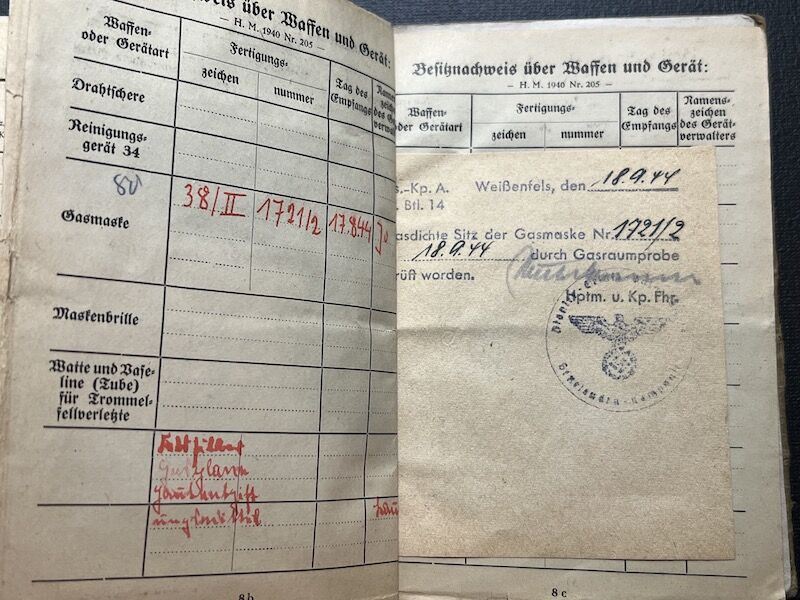 weis über Waffen und Gerät:
— H. M. 1940 Nr. 205 —
Waffen-
oder Gerätart
Fertigungs-
zeichen
nummer
Tag des
Empfangs
Namens-
zeichen
des Gerät-
verwalters
Drahtschere
Reinigungs-
gerät 34
Gasmaske
38/II 1721/2 17.8.44
Maskenbrille
Watte und Vase-
line (Tube)
für Trommel-
fellverletzte
Gasplane
Hautentgift
ungsmittel
8 b
Besitznachweis über Waffen und Gerät:
— H. M. 1940 Nr. 205 —
Waffen-
oder Gerätart
Fertigungs-
zeichen
nummer
Tag des
Empfangs
Namens-
zeichen
des Gerät-
verwalters
s.-Kp. A. Weißenfels, den 18.9.44
. Btl. 14
asdichte Sitz der Gasmaske Nr. 1721/2
18.9.44 durch Gasraumprobe
rüft worden.
Hptm. u. Kp. Fhr.
8 c